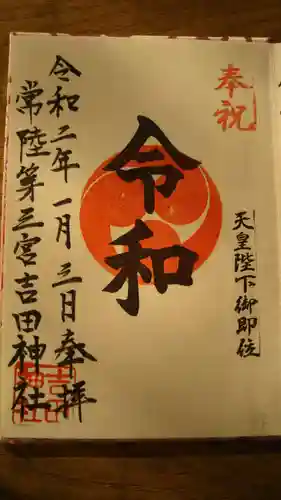 奉祝
天皇陛下御即位
令和
令和二年一月三日奉拝
常陸第三宮吉田神社